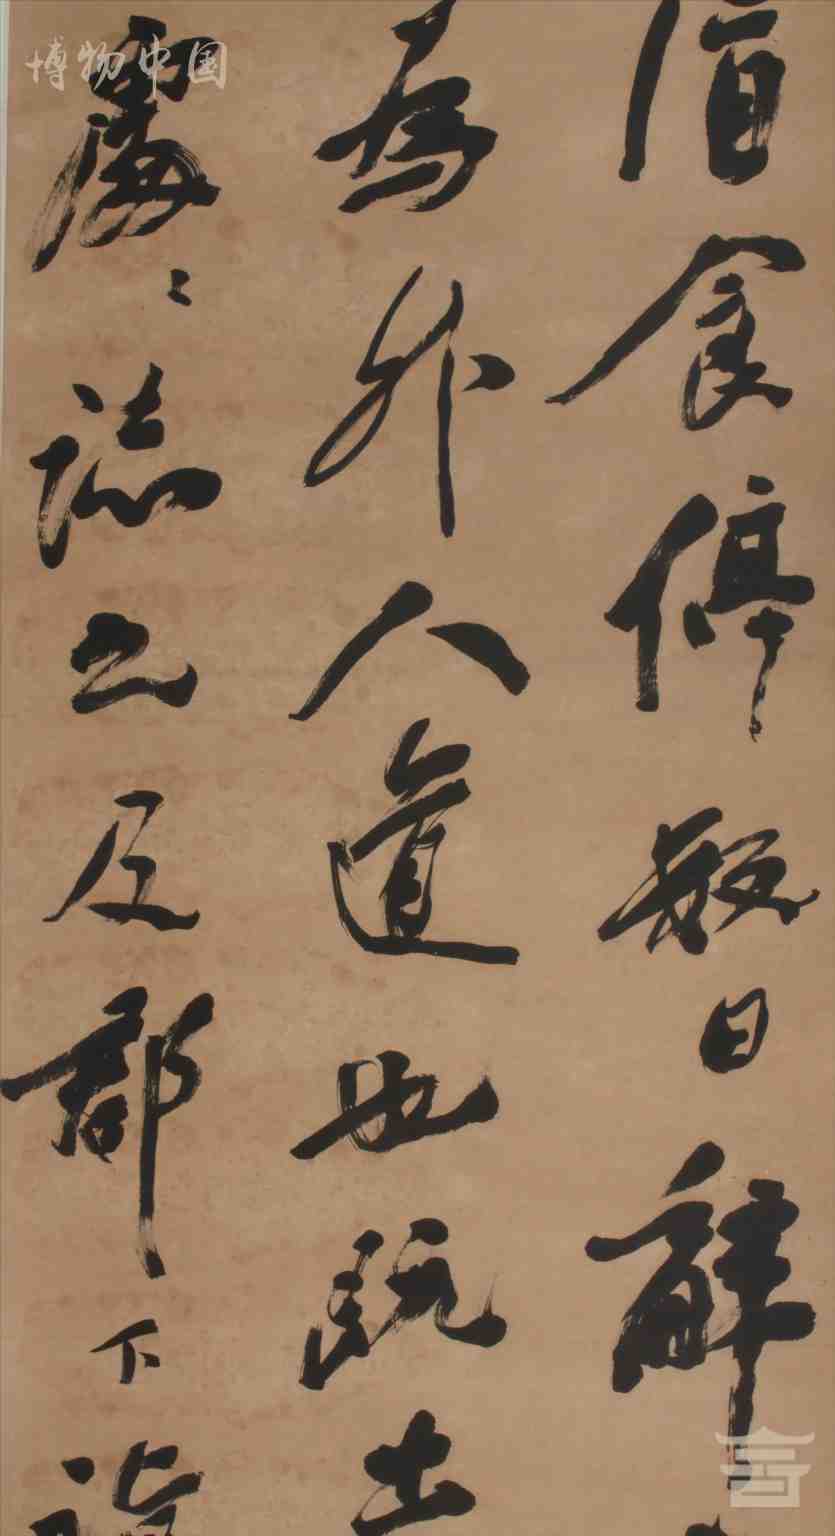 酒食停數日辭
為外人道也既出
處處誌之及郡下詣
博物中国